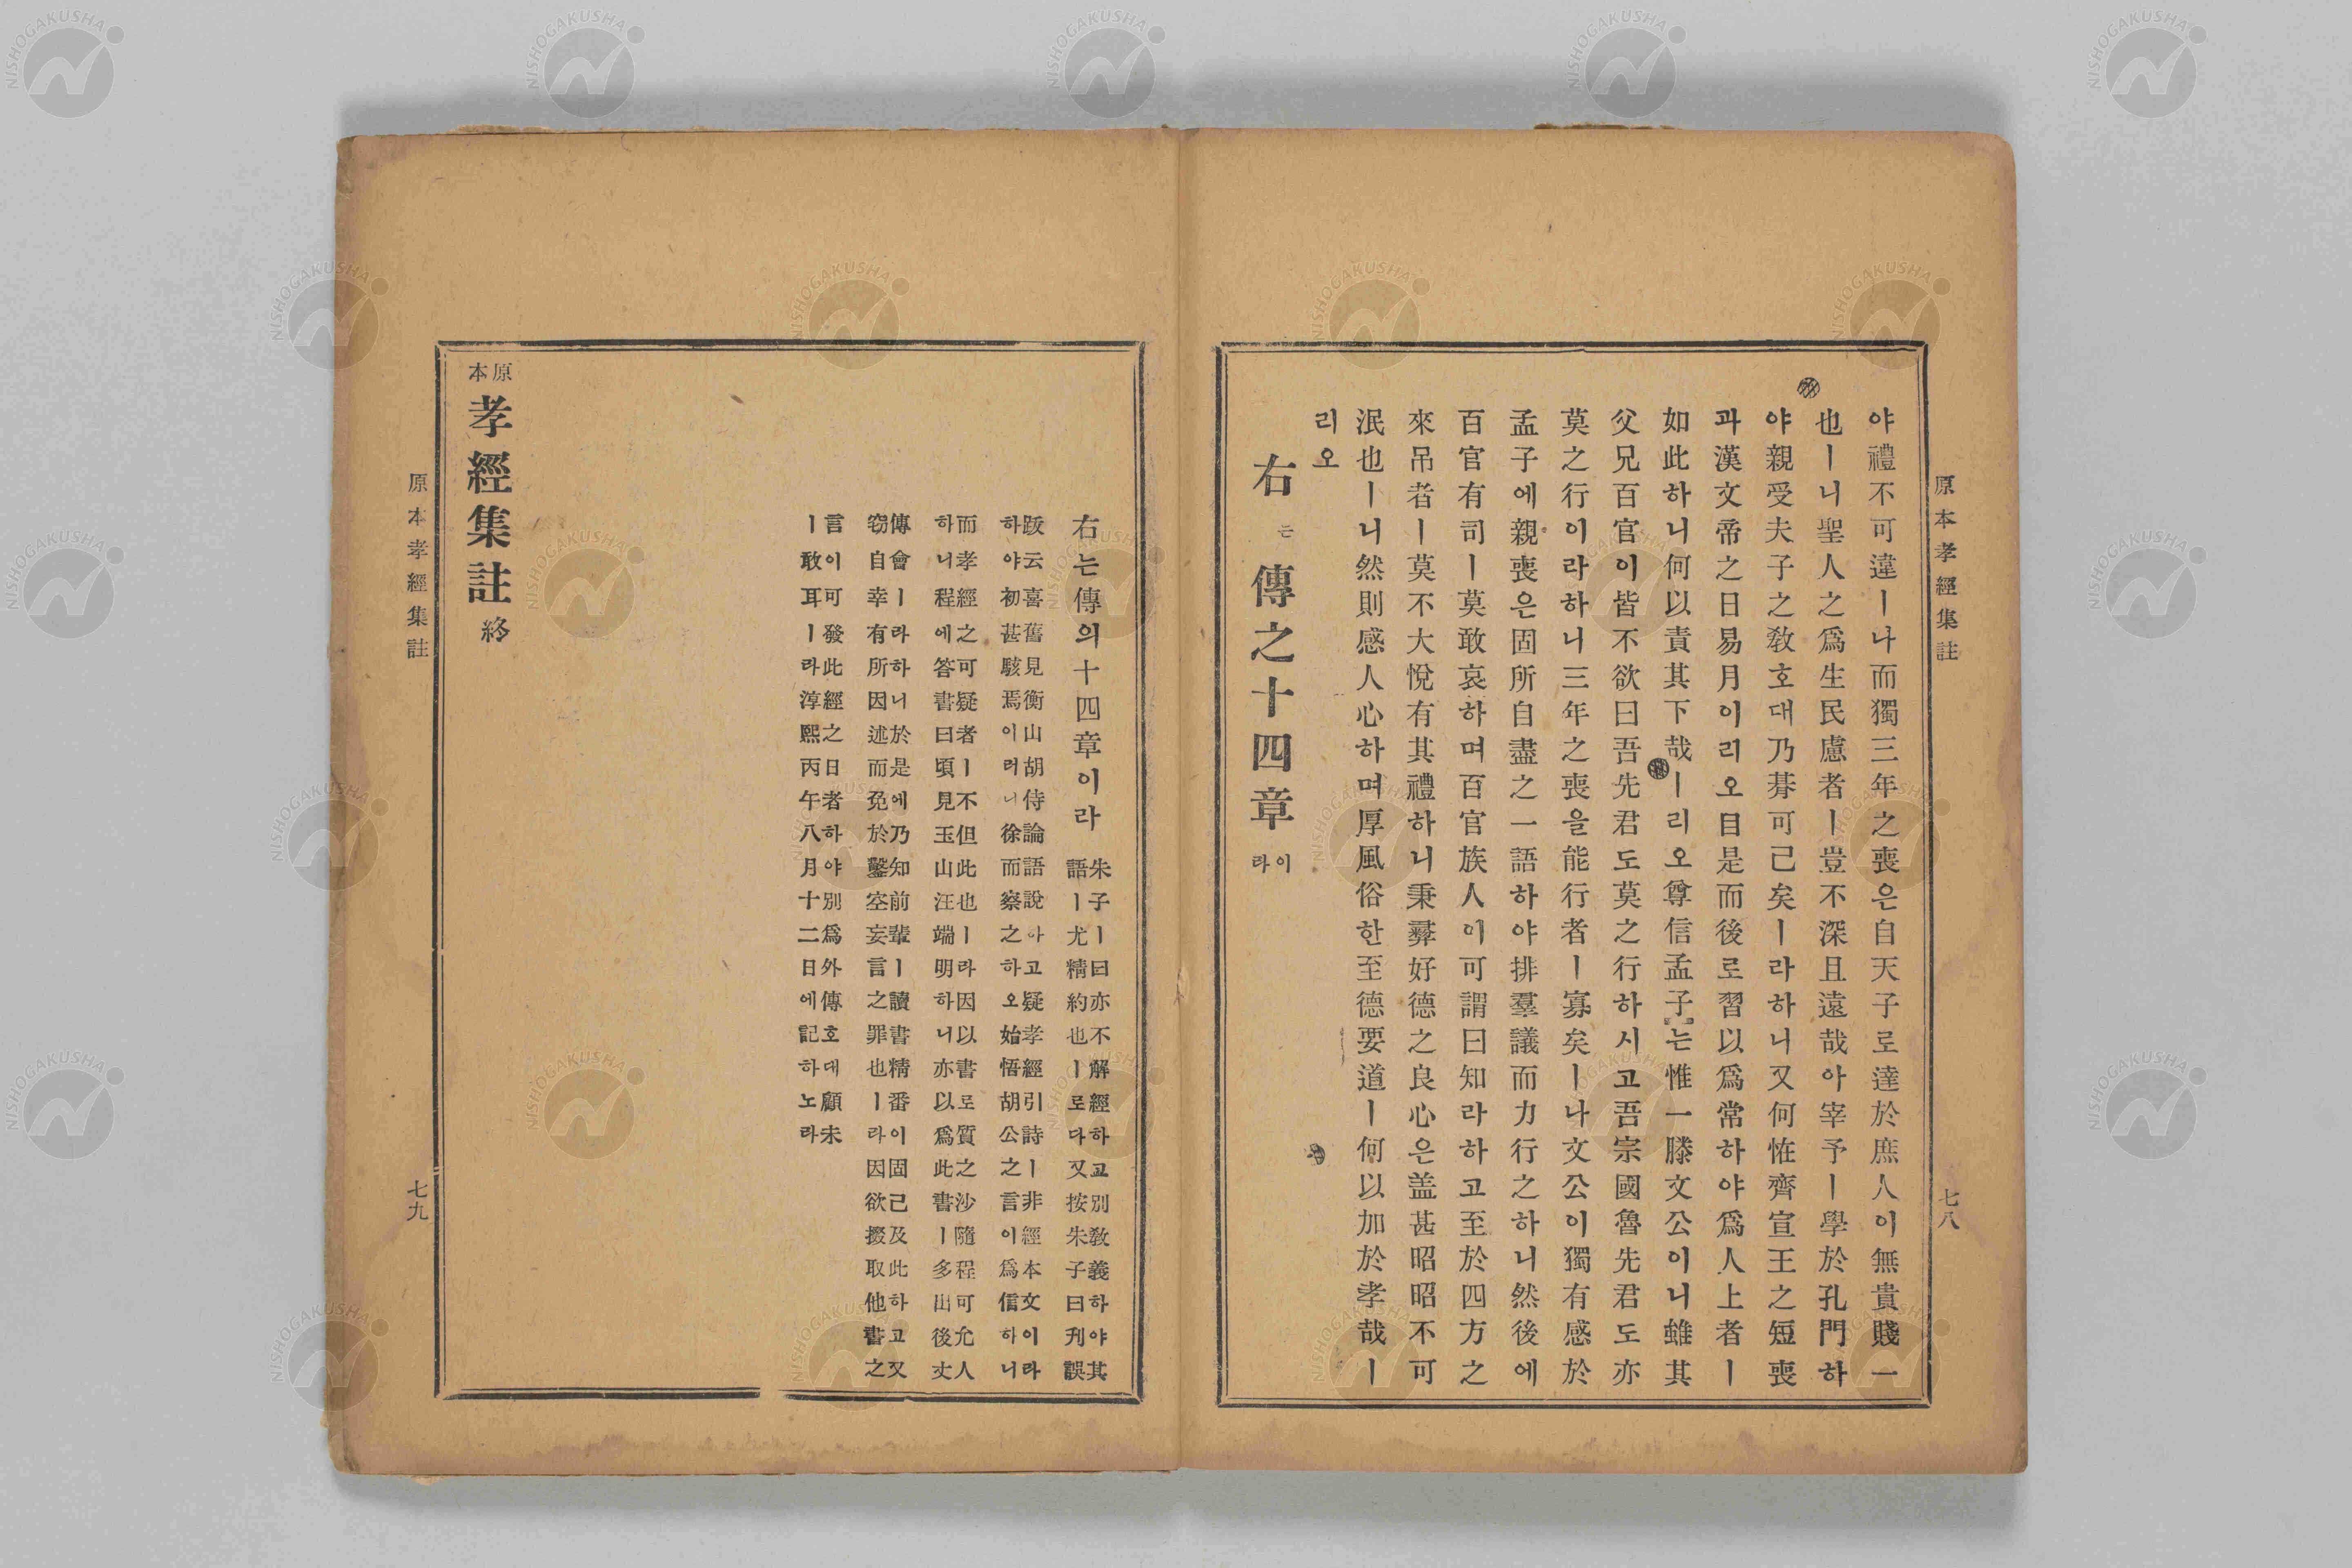 原本孝經集註
七八
야禮不可違ㅣ나而獨三年之喪은自天子로達於庶人이無貴賤一
也ㅣ니聖人之爲生民慮者ㅣ豈不深且遠哉아宰予ㅣ學於孔門하
야親受夫子之敎호대乃朞可已矣ㅣ라하니又何恠齊宣王之短喪
과漢文帝之日易月이리오自是而後로習以爲常하야爲人上者ㅣ
如此하니何以責其下哉ㅣ리오尊信孟子는惟一滕文公이니雖其
父兄百官이皆不欲曰吾先君도莫之行하시고吾宗國魯先君도亦
莫之行이라하니三年之喪을能行者ㅣ寡矣ㅣ나文公이獨有感於
孟子에親喪은固所自盡之一語하야排羣議而力行之하니然後에
百官有司ㅣ莫敢哀하며百官族人이可謂曰知라하고至於四方之
來吊者ㅣ莫不大悅有其禮하니秉彛好德之良心은盖甚昭昭不可
泯也ㅣ니然則感人心하며厚風俗한至德要道ㅣ何以加於孝哉ㅣ
리오
右는傳之十四章이라
右는傳의十四章이라
朱子ㅣ曰亦不解經하고別敎義하야其
語ㅣ尤精約也ㅣ로다又按朱子曰刋誤
跋云喜舊見衡山胡侍論語說아고疑孝經引詩ㅣ非經本文이라
하야初甚駭焉이러니徐而察之하오始悟胡公之言이爲信하니
而孝經之可疑者ㅣ不但此也ㅣ라因以書로質之沙隨程可允人
하니程에答書曰頃見玉山汪端明하니亦以爲此書ㅣ多出後丈
傳會ㅣ라하니於是에乃知前輩ㅣ讀書精番이固已及此하고又
窃自幸有所因述而免於鑿空妄言之罪也ㅣ라因欲掇取他書之
言이可發此經之日者하야別爲外傳호대顧未
ㅣ敢耳ㅣ라淳熙丙午八月十二日에記하노라
原本孝經集註終
原本孝經集註
七九
NISHOGAKUSHA